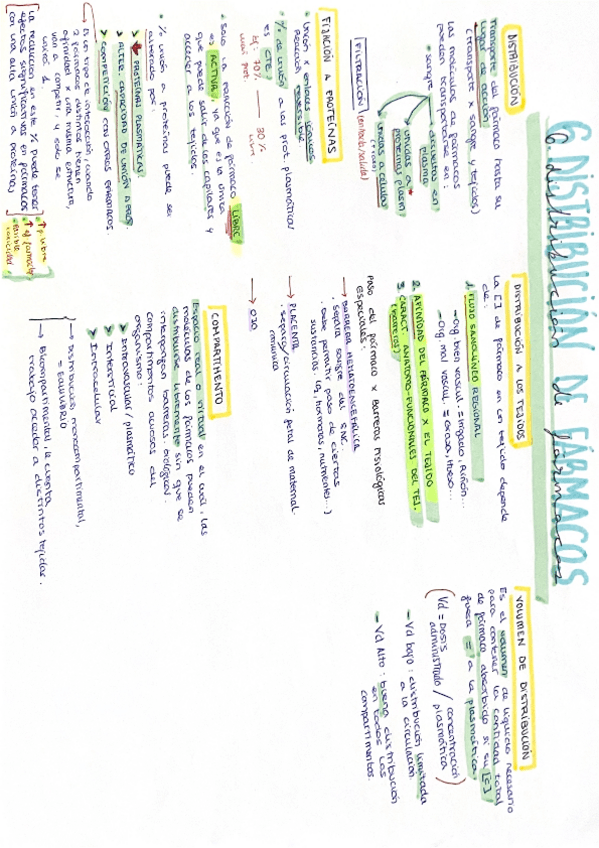 6. DISTRIBUCIÓN DE FÁRMACOS
6. distribución de fármacos
DISTRIBUCIÓN
Transporte del fármaco hasta su
lugar de acción.
(transporte x sangre y tejidos)
Las moléculas de fármacos
pueden transportarse en:
sangre
disueltas en
plasma
unidas a
proteínas plasm.
unidas a células
FILTRACIÓN (entrada/salida)
FIJACIÓN A PROTEÍNAS
Unión x enlaces
Producto reversible.
% de unión a las prot. plasmáticas
es CTE.
70% — 30%
unión prot. libre.
Solo la fracción de fármaco LIBRE
es ACTIVA, ya que es la única
que puede salir de los capilares y
acceder a los tejidos.
% unión a proteínas puede ser
alterado por:
> ↓ PROTEÍNAS PLASMÁTICAS
> ALTER. CAPACIDAD DE UNIÓN A PROT.
> COMPETICIÓN CON OTROS FÁRMACOS.
Es un tipo de interacción, cuando
2 fármacos distintos tienen
afinidad x una misma estructura
van a competir, y solo se
unirá 1.
La reducción en este % puede tener
efectos significativos en fármacos
con una alta unión a proteínas
↑ F. libre
↑ ef. farmaco.
posible
toxicidad
DISTRIBUCIÓN A LOS TEJIDOS
La [ ] de fármaco en un tejido depende
de:
1. FLUJO SANGUÍNEO REGIONAL
- Org. bien vascul. = Hígado, Riñón...
- Org. mal vascul. = Grasa, Hueso...
2. AFINIDAD DEL FÁRMACO X EL TEJIDO
3. CARACT. ANATOMO-FUNCIONALES DEL TEJ.
(barreras)
Paso del fármaco x Barreras Fisiológicas
especiales:
→ BARRERA HEMATOENCEFÁLICA
. separa sangre del SNC.
. debe permitir paso de ciertas
sustancias
→ PLACENTA
. separa circulación fetal de maternal.
→ OJO
COMPARTIMENTO
Espacio real o virtual en el cual, las
moléculas de los fármacos pueden
distribuirse libremente sin que se
interpongan barreras biológicas.
Compartimentos acuosos del
organismo:
> Intravascular / plasmático
> Intersticial
> Intracelular
→ Distribución monocompartimental,
= EQUILIBRIO
→ Bicompartimental, le cuesta
trabajo acceder a distintos tejidos.
VOLUMEN DE DISTRIBUCIÓN
Es el volumen de líquido necesario
para contener la cantidad total
de fármaco absorbido si su [C]
fuera = a la plasmática.
(Vd = Dosis administrada / concentración plasmática)
- Vd bajo: distribución limitada
a la circulación.
- Vd Alto: buena distribución
en todos los
compartimentos.